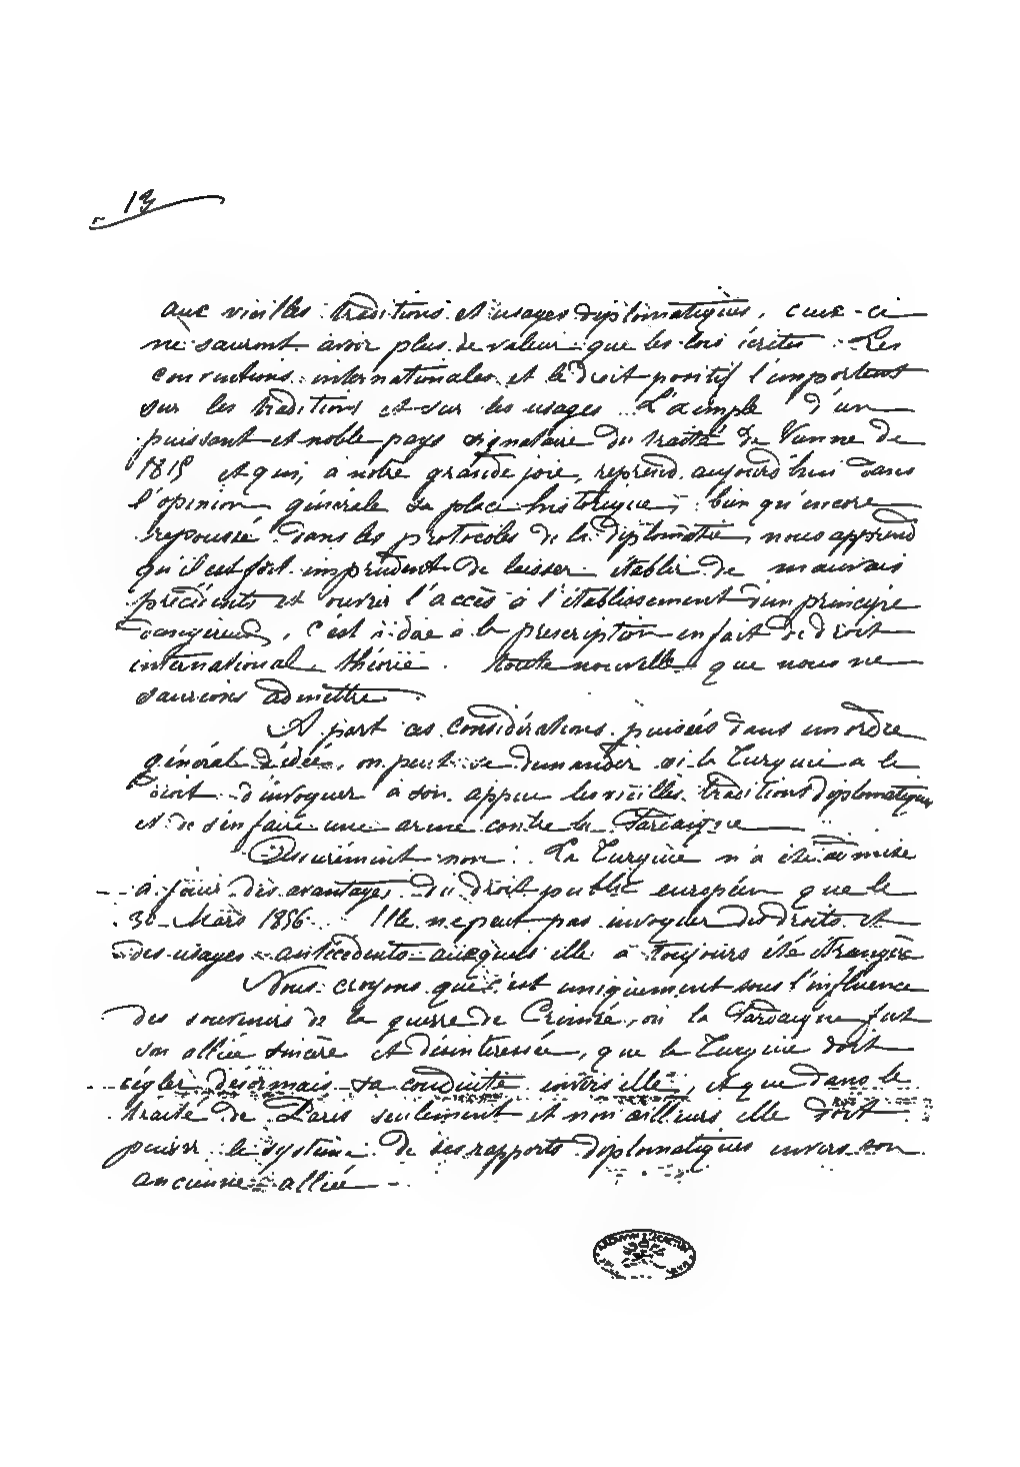 13
aux vieilles traditions et usages diplomatiques, ceux-ci
ne sauront avoir plus de valeur que les lois écrites. Les
conventions internationales et le droit positif l'emportent
sur les traditions et sur les usages. L'exemple d'un
puissant et noble pays signataire du traité de Vienne de
1815 et qui, à notre grande joie, reprend aujourd'hui dans
l'opinion générale sa place historique, bien qu'encore
repoussé dans les protocoles de la diplomatie, nous apprend
qu'il est fort imprudent de laisser établir de mauvais
précédents et ouvrir l'accès à l'établissement d'un principe
dangereux, c'est à dire à la prescription en fait de droit
international, théorie toute nouvelle que nous ne
saurions admettre.
A part ces considérations puisées dans un ordre
général d'idées, on peut se demander si la Turquie a le
droit d'invoquer à son appui les vieilles traditions diplomatiques
et de s'en faire une arme contre la Sardaigne
Assurément non. La Turquie n'a été admise
à jouir des avantages du droit public européen que le
30 Mars 1856. Elle ne peut pas invoquer des droits et
des usages antécédents auxquels elle a toujours été étrangère
Nous croyons que c'est uniquement sous l'influence
des souvenirs de la guerre de Crimée, où la Sardaigne fut
son alliée sincère et désintéressée, que la Turquie doit
régler désormais sa conduite envers elle, et que dans le
traité de Paris seulement et non ailleurs elle doit
puiser le système de ses rapports diplomatiques envers son
ancienne alliée